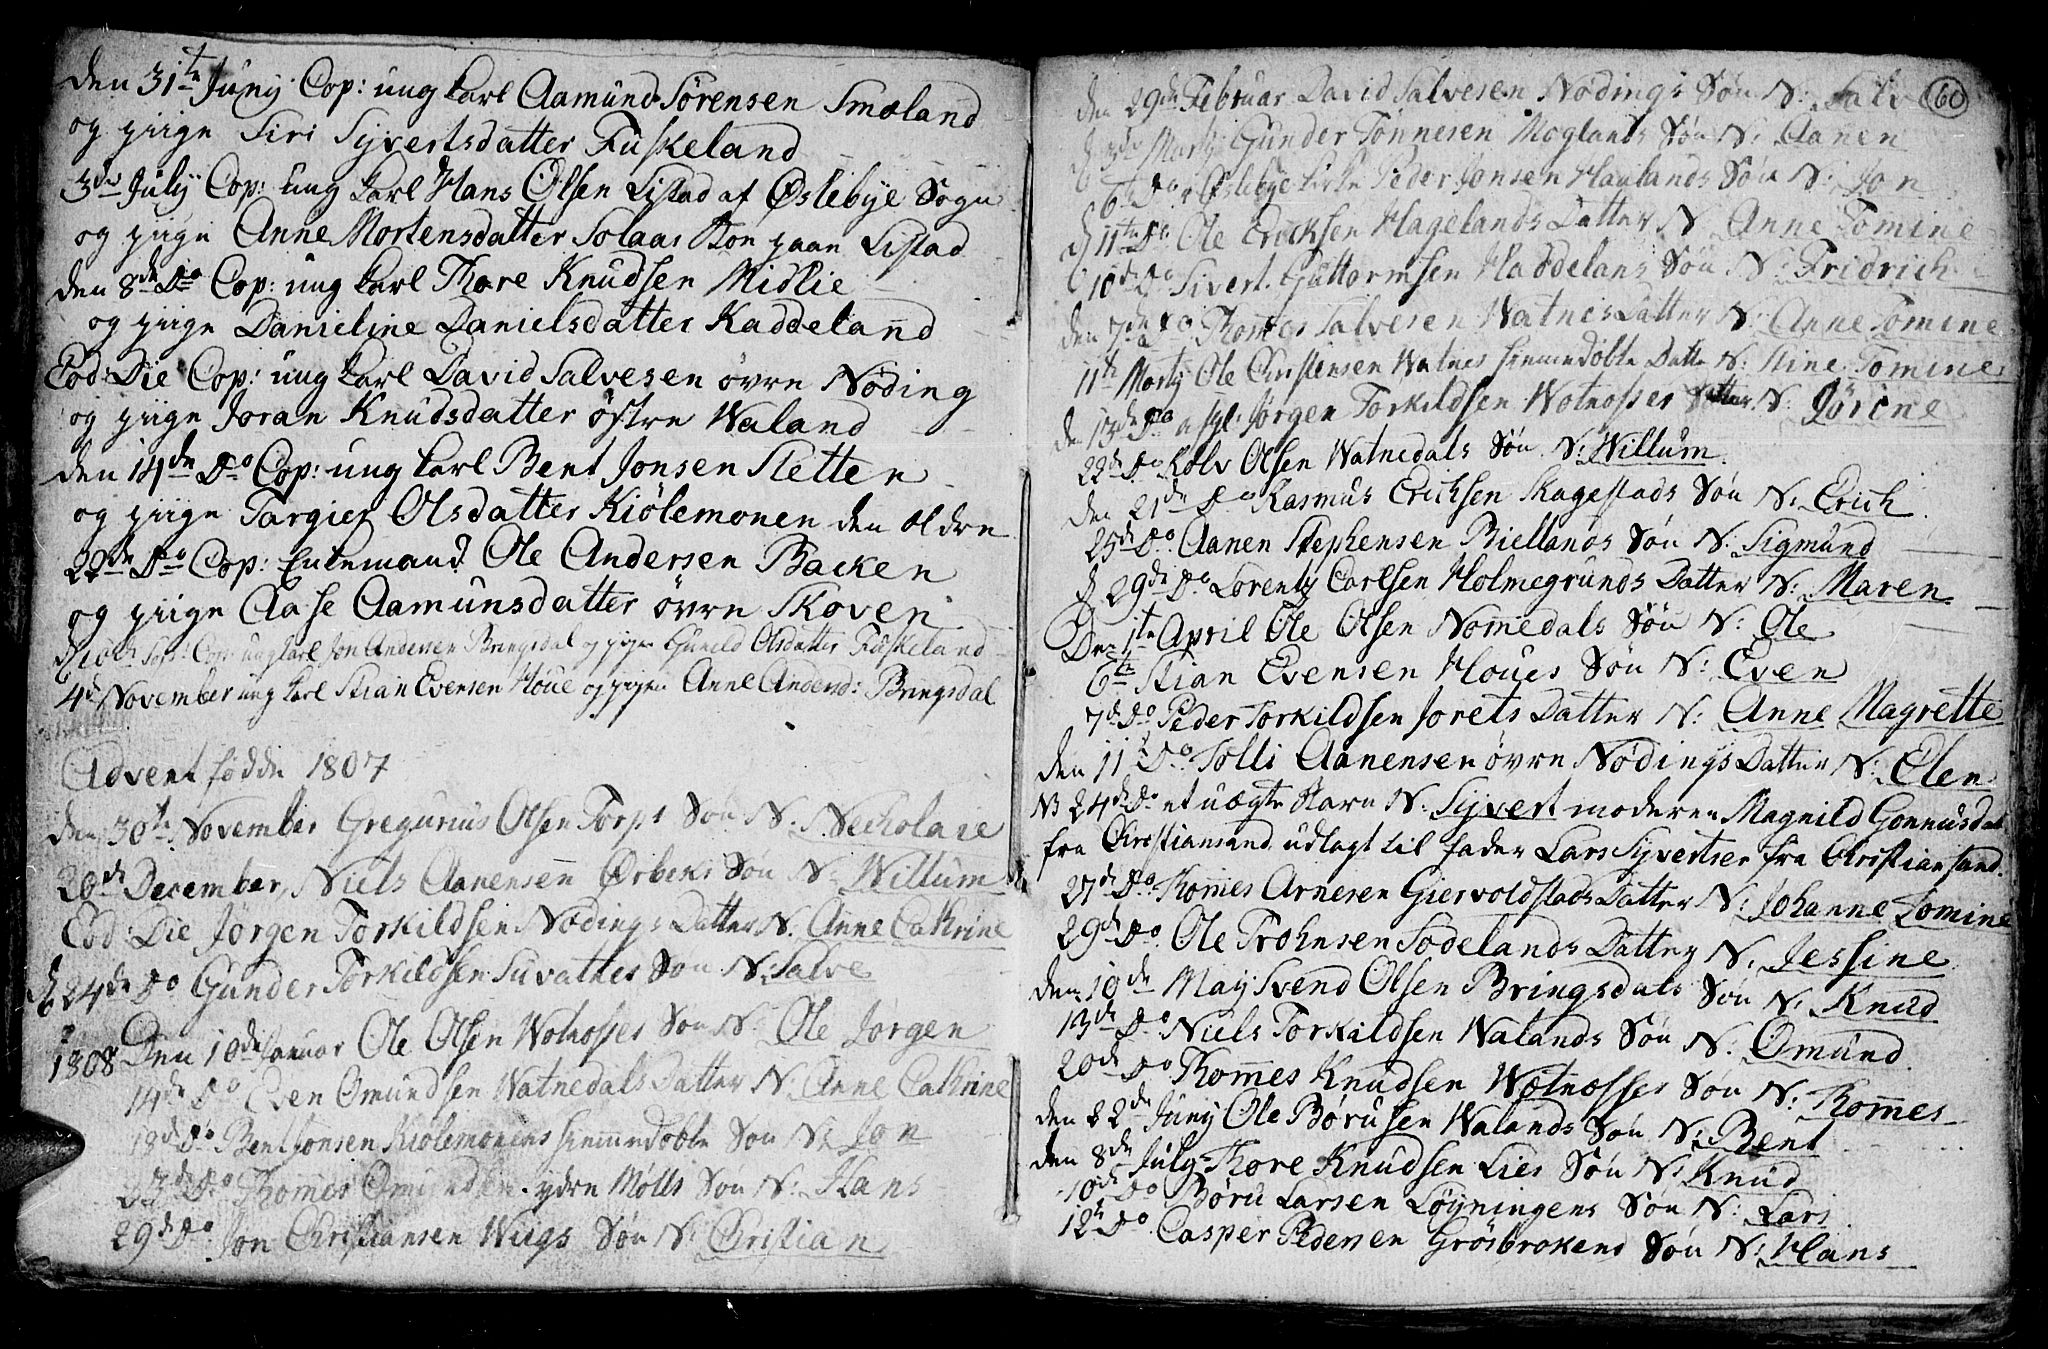 den 31te Juny Cop: ung karl Aamund Sörensen Smæland
og piige Siri Syvertsdatter Fuskeland
3de July Cop: ung karl Hans Olsen Listad af Øslebye Sogn
og piige Anne Mortensdatter Solaas paan Listad
den 8de Do Cop: ung karl Thore Knudsen Midlie
og piige Danieline Danielsdatter Kaddeland
Eod: Die Cop: ung karl David Salvesen övre Nöding
og piige Joran Knudsdatter östre Waland
den 14de Do Cop: ung karl Bent Jonsen Sletten
og piige Targier Olsdatter Kiölemonen den Eldre
22de Do Cop: Enkemand Ole Andersen Backen
og piige Aase Aamunsdatter övre Skoven
Cop: ung karl Jon Andersen Bringsdal og pige Gunild Olsdatter Fuskeland
4de November ung karl Stian Evensen Houe og pige Anne Andersd: Bringsdal
Advent födde 1807
den 30te November Gregurius Olsen Torps Sön N: Necholaie
20de December, Niels Aanensen Örbeks Sön N: Willum
Eod: Die Jørgen Torkildsen Nödings Datter N. Anne Cathrine
d 24de Do Gunder Torkildsen Suvatnes Son N: Salve
1808 Den 10de Januar Ole Olsen Wotnosses Son N: Ole Jørgen
14de Do Even Omundsen Watnedals Datter N: Anne Cathrine
18de Do Bent Jonsen Kiölemonens hiemmedöbte Son N: Jon
23de Do Thomes Omundsen ydre Mölls Son N: Hans
29de Do Jon Christiansen Wiigs Sön N: Christian
60
den 29de Februar David Salvesen Nödings Sön N: Salve
Marty Gunder Tönnesen Moglands Sön N: Aanen
6te Do i Øslebye kirke Peder Jonsen Haulands Sön N: Jon
d 11te Do Ole Ericksen Hagelands Datter N: Anne Tomine
10de Do Sivert Guttormsen Haddelans Sön N: Fridrich
den 7de Do Thommes Salvesen Watnes Datter N: Anne Tomine
11te Marty Ole Christensen Watnes hiemmedöbte Datte N: Stine Tomine
den 13de Do Jørgen Torkildsen Wotnosses Datter N: Jörine
22de Do Rolv Olsen Watnedals Sön N: Willum
den 21de Do Rasmus Erichsen Skagestads Sön N: Erich
25de Do Aanen Stephensen Biellands Sön N: Sigmund
d 29de Do Lorentz Carlsen Holmegrunds Datter N: Maren
Den 1te April Ole Olsen Nomedals Sön N: Ole
6te Stian Evensen Houes Sön N: Even
7de Do Peder Torkildsen Jorets Datter N: Anne Magrette
den 11te Do Tolli Aanensen övre Nödings Datter N: Elen
NB 24de Do et uægte Barn N: Syvert moderen Magnild Gonnusdat
fra Christiansand udlagt til fader Lars Syvertser fra Christiansand.
27de Do Thommes Arnesen Giervoldstads Datter N: Johanne Tomine
29de Do Ole Trohnsen Södelands Datter N. Jessine
den 10de May Svend Olsen Bringsdals Sön N: Knud
13de Do Niels Torkildsen Walands Sön N: Omund
20de Do Thommes Knudsen Wotnosses Sön N: Thommes
den 22de Juny Ole Börusen Walands Sön N: Bent
den 8de July Thore Knudsen Lies Sön N: Knud
10de Do Böru Larsen Löyningens Sön N: Lars
12te Do Casper Pedersen Grösbrokens Sön N: Hans